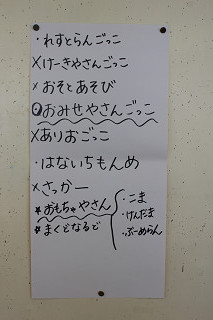 ・れすとらんごっこ
×けーきやさんごっこ
×おそとあそび
◎おみせやさんごっこ
×ありおごっこ
・はないちもんめ
×さっかー
★おもちゃやさん
★まくどなるど
・こま
・けんだま
・ぶーめらん